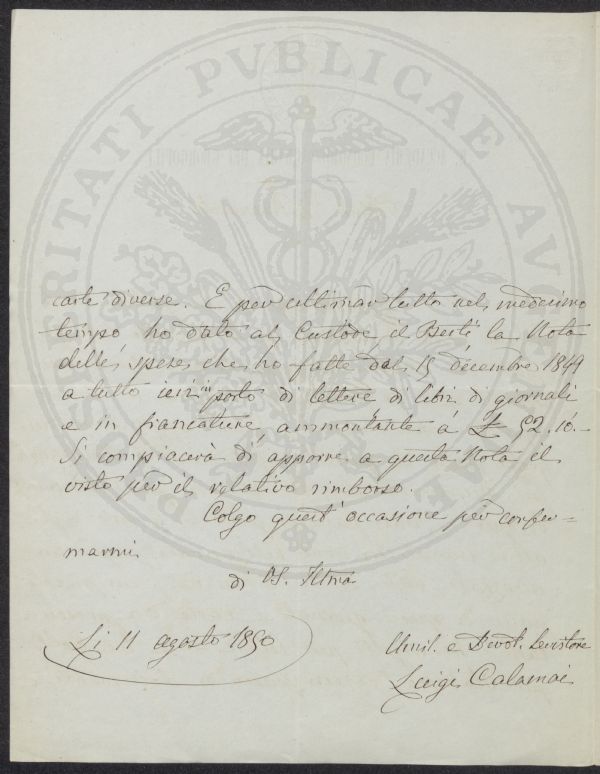 PROSPERITATI PVBLICAE AVGENDAE
carte diverse. E per ultimar tutto nel medesimo
tempo ho dato al Custode il Berti la Nota
delle spese che ho fatte dal 15 decembre 1844
a tutto ieri in porto di lettere di libri di giornali
e in francature, ammontante a £ 52.10.-
Si compiacerà di apporre a questa Nota il
visto per il relativo rimborso.
Colgo quest' occasione per confer=
marmi
di VS. Illma
Li 11 agosto 1850
Umil. e Devot. Servitore
Luigi Calamai